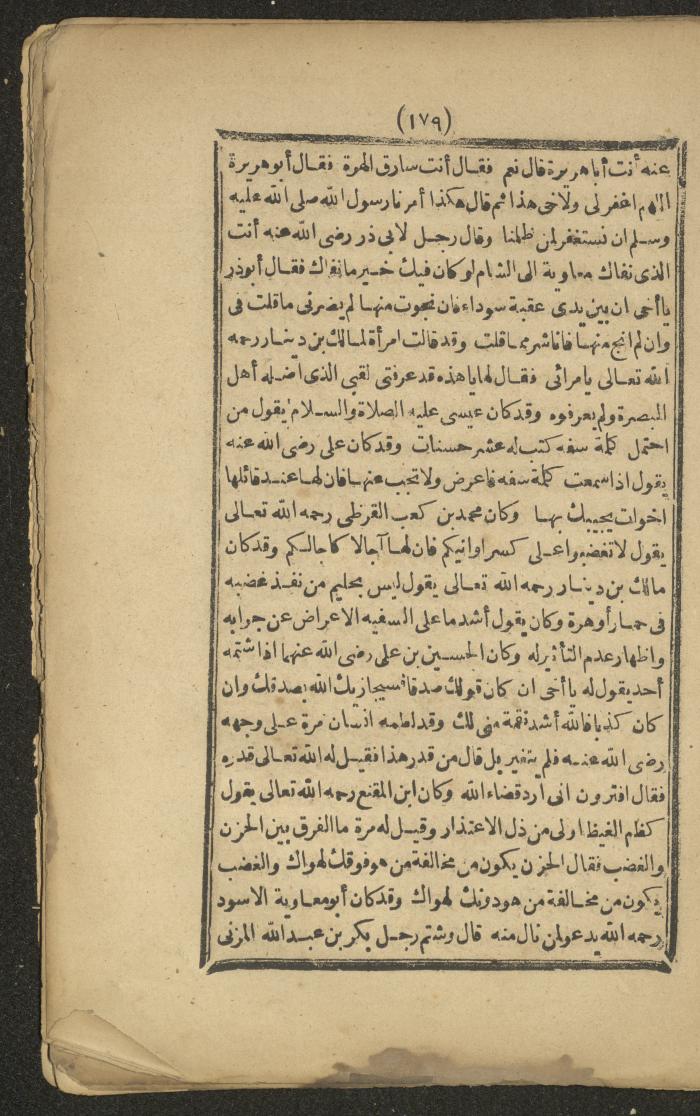 (١٧٩)
عنه أنت أباهريرة قال نعم فقال أنت سارق الهرة فقال أبوهريرة
اللهم اغفرلى ولاخى هذا ثم قال هكذا أمرنا رسول الله صلى الله عليه
وسلم ان نستغفر لمن ظلمنا وقال رجل لابى ذر رضى الله عنه أنت
الذى نفاك معاوية الى الشام لو كان فيك خير ما نفاك فقال أبوذر
يا أخى ان بين يدى عقبة سوداء فان نجوت منها لم يضرنى ما قلت فى
وان لم انج منها فانا شر مما قلت وقد قالت امرأة لمالك بن دينار رحمه
الله تعالى يا مرائى فقال لها يا هذه قد عرفتى لقبى الذى اضله أهل
البصرة ولم يعرفوه وقد كان عيسى عليه الصلاة والسلام يقول من
احتمل كلمة سفه كتب له عشر حسنات وقد كان على رضى الله عنه
يقول اذا سمعت كلمة سفه فاعرض ولا تجب عنها فان لها عند قائلها
اخوات يجيبك بها وكان محمد بن كعب القرظى رحمه الله تعالى
يقول لا تغضبوا على كسر اوانيكم فان لها آجالا كاجالكم وقد كان
مالك بن دينار رحمه الله تعالى يقول ليس بحليم من نفذ غضبه
فى حمار أو هرة وكان يقول أشد ما على السفيه الاعراض عن جوابه
واظهار عدم التأثير له وكان الحسين بن على رضى الله عنهما اذا شتمه
أحد يقول له يا أخى ان كان قولك صدقا فسيجازيك الله بصدقك وان
كان كذبا فالله أشد نقمة منى لك وقد لطمه انسان مرة على وجهه
رضى الله عنه فلم يتغير بل قال من قدر هذا فقيل له الله تعالى قدره
فقال افترون انى أرد قضاء الله وكان ابن المقنع رحمه الله تعالى يقول
كظم الغيظ اولى من ذل الاعتذار وقيل له مرة ما الفرق بين الحزن
والغضب فقال الحزن يكون من مخالفة من هو فوقك لهواك والغضب
يكون من مخالفة من هو دونك لهواك وقد كان أبو معاوية الاسود
رحمه الله يدعو لمن نال منه قال وشتم رجل بكر بن عبد الله المزنى